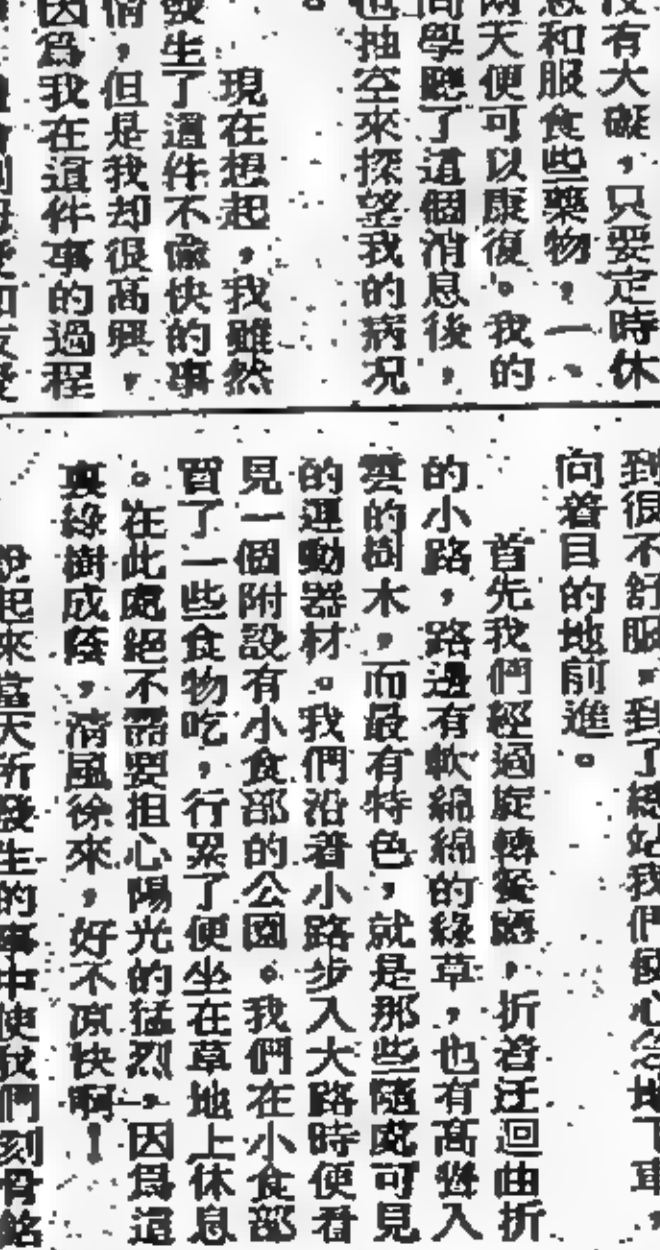 沒有大礙，只要定時休
息和服食些藥物，一、
兩天便可以康復。我的
同學聽了這個消息後，
也抽空來探望我的病况
。
現在想起，我雖然
發生了這件不愉快的事
情，但是我却很高興，
因爲我在這件事的過程
到很不舒服，到了總站我們便心急地下車，
向着目的地前進。
首先我們經過旋轉餐廳，折着迂迴曲折
的小路，路邊有軟綿綿的綠草，也有高聳入
雲的樹木，而最有特色，就是那些隨處可見
的運動器材。我們沿着小路步入大路時便看
見一個附設有小食部的公園。我們在小食部
買了一些食物吃，行累了便坐在草地上休息
。在此處絕不需要担心陽光的猛烈，因爲這
裏綠樹成蔭，清風徐來，好不凉快啊！
說起來當天所發生的事中使我們刻骨銘